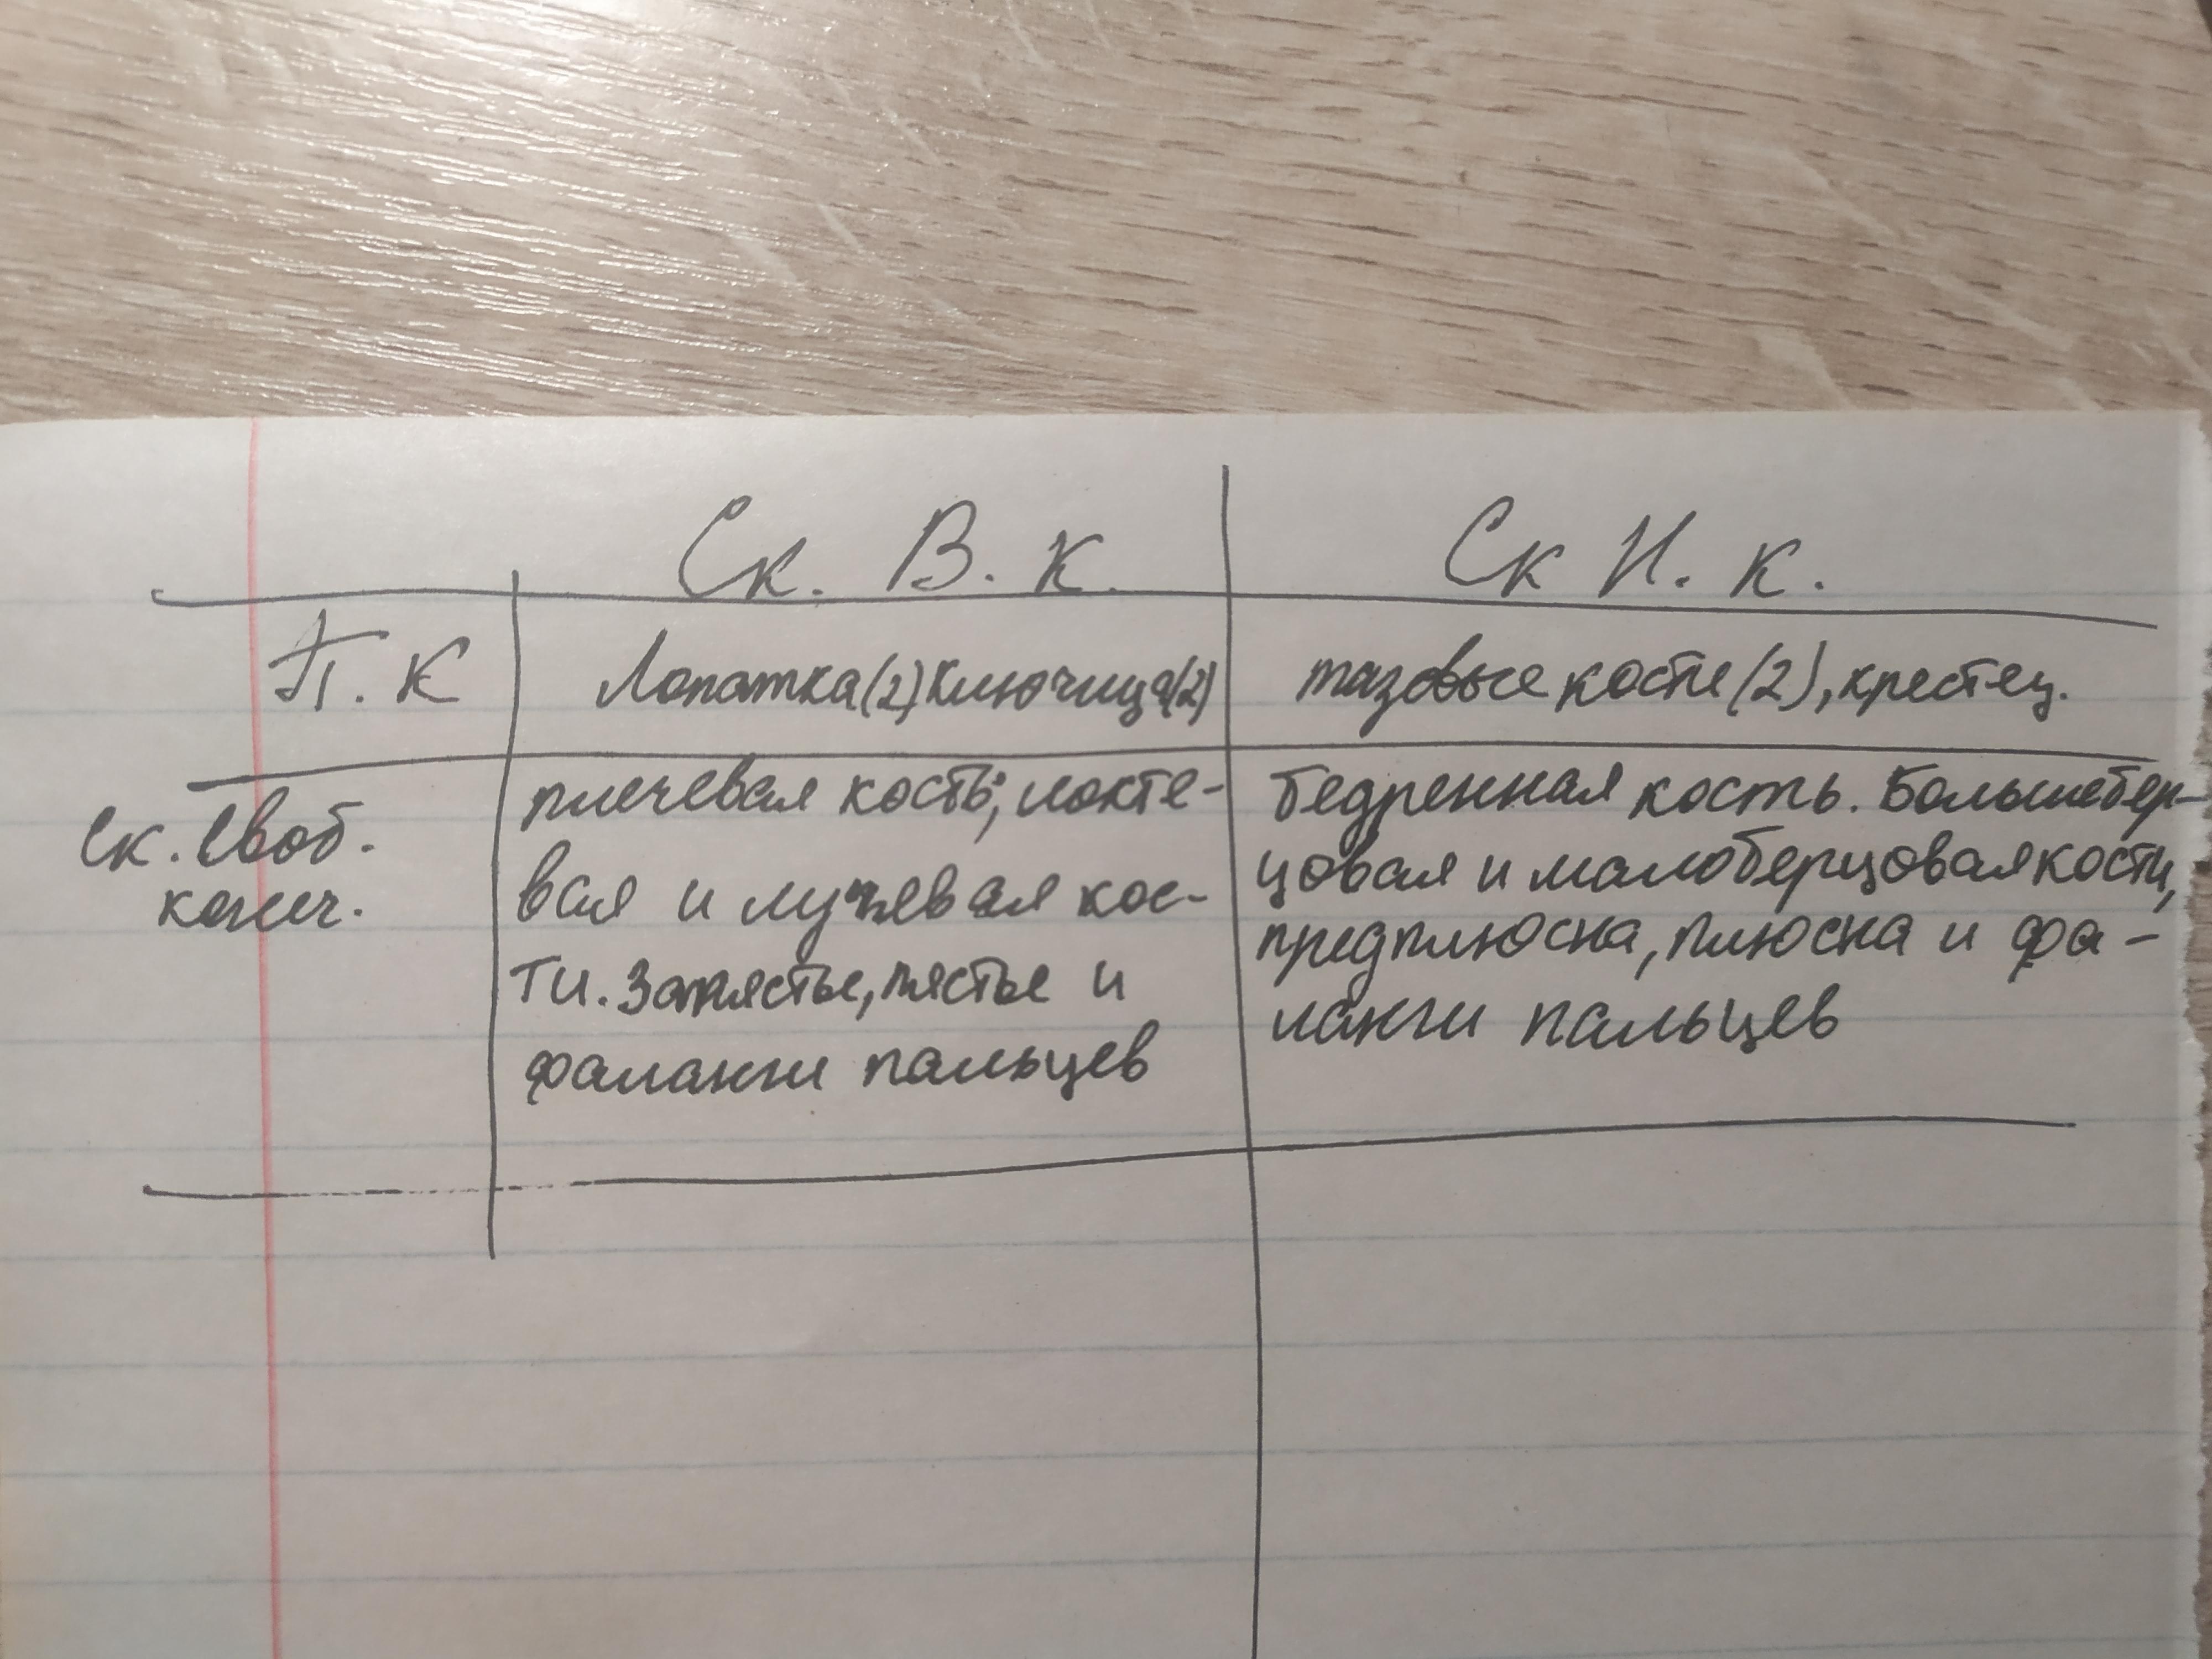 Ск. В. К. Ск Н. К.
П. К Лопатка(2) Ключица(2) тазовые кости(2), крестец.
Ск. Своб.
конеч.
плечевая кость; локте-
вая и лучевая кос-
ти. Запястье, пястье и
фаланги пальцев
бедренная кость. Большебер-
цовая и малоберцовая кости,
предплюсна, плюсна и фа-
ланги пальцев